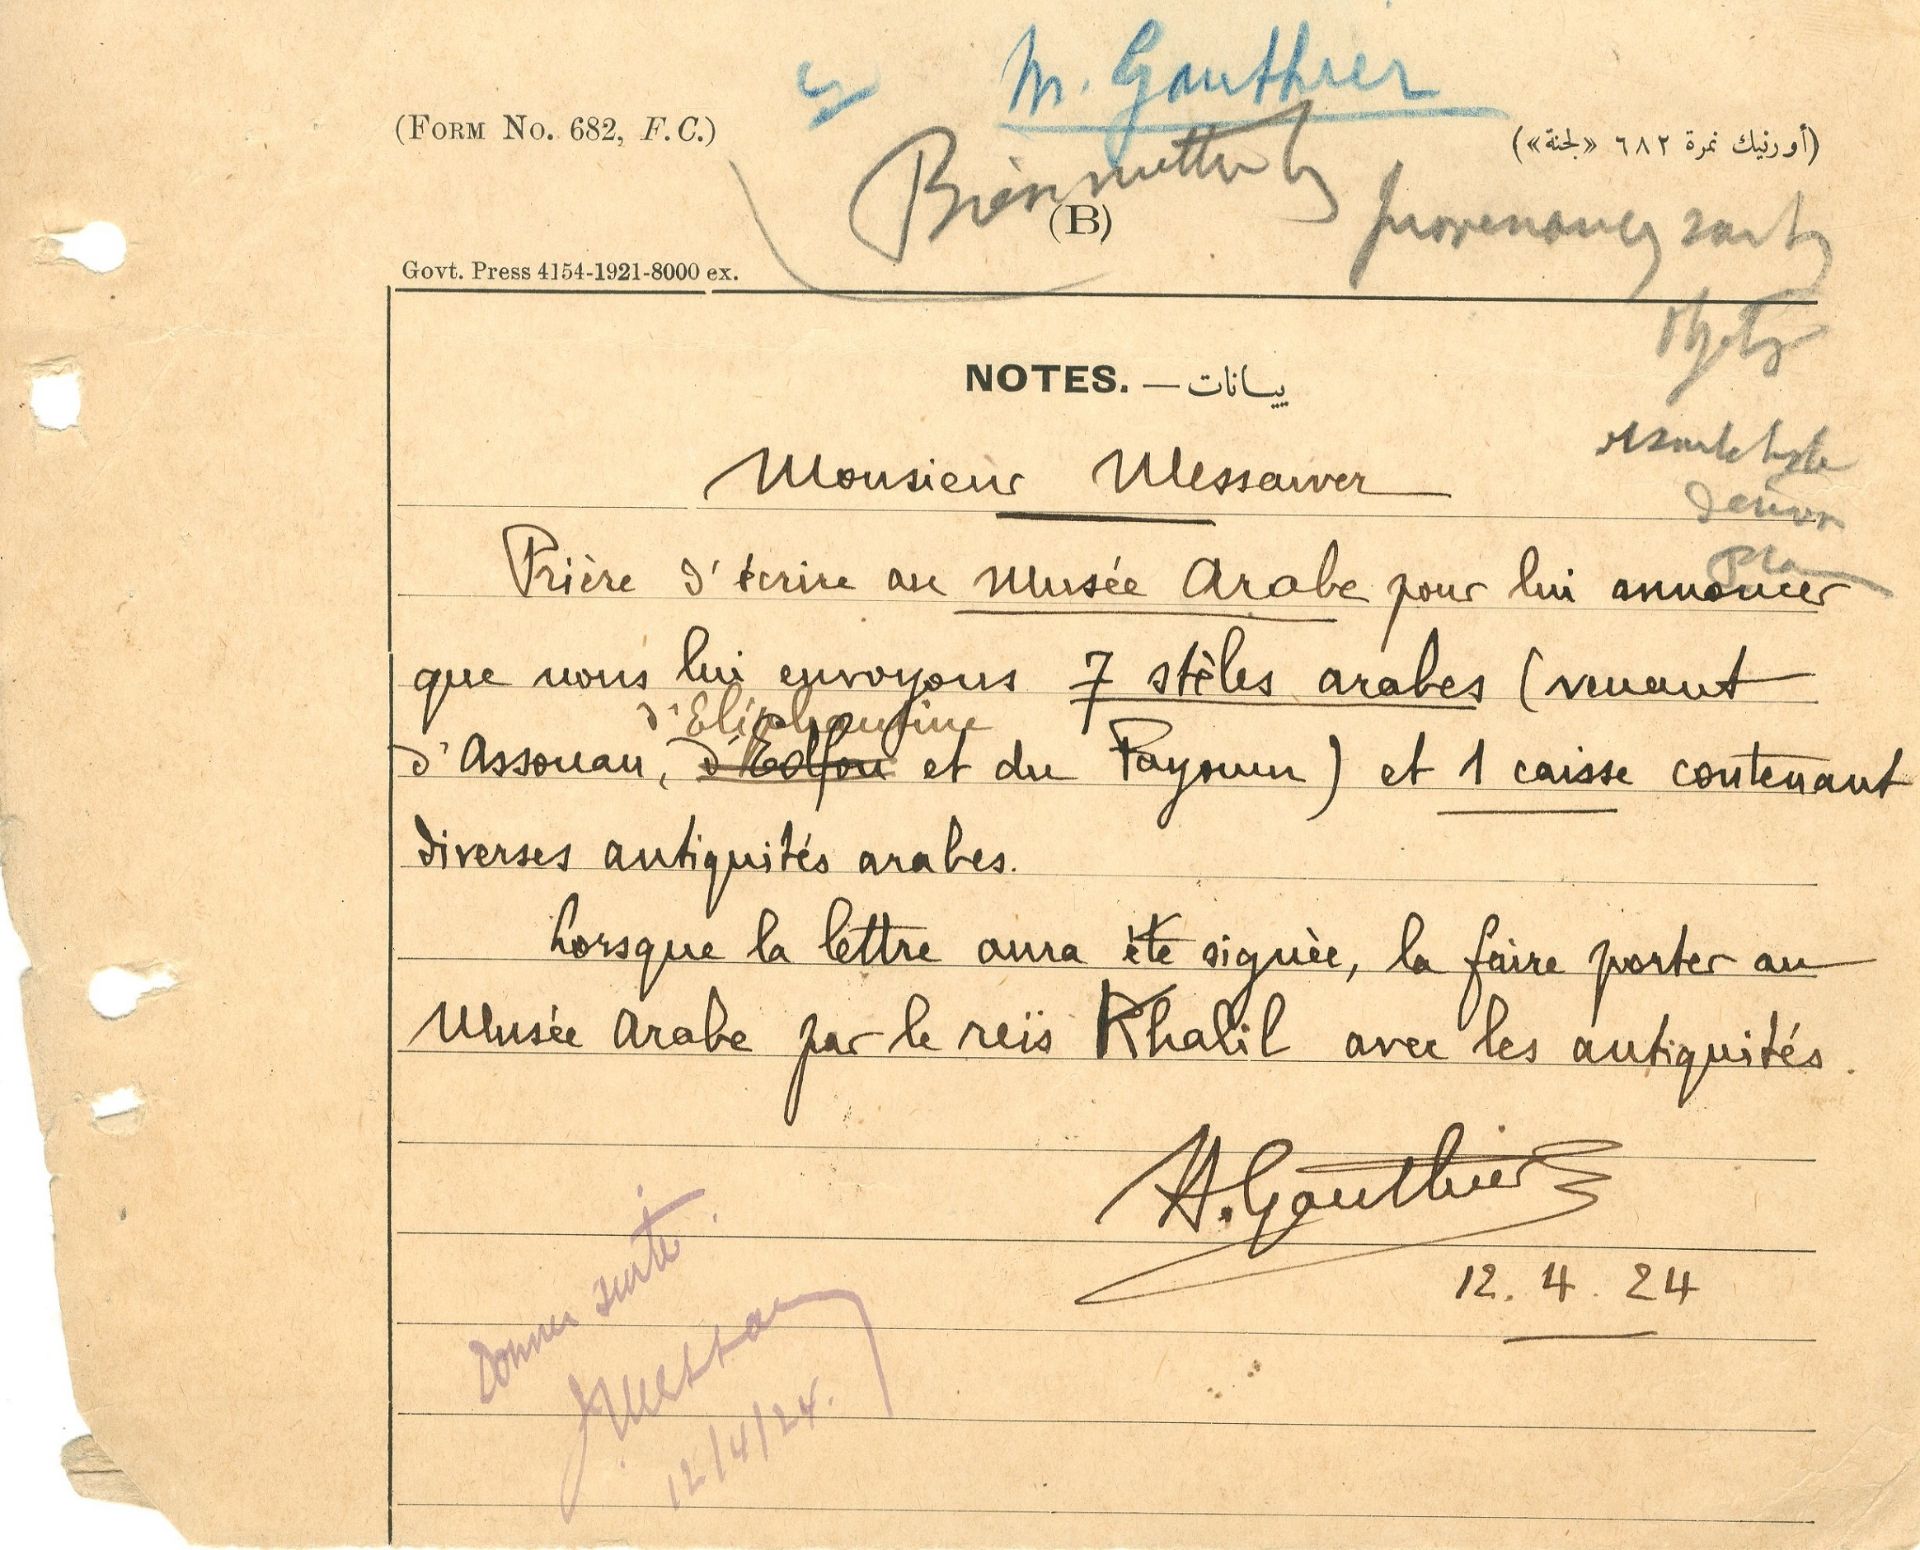 M. Gauthier
(FORM NO. 682, F.C.)
(أورنيك نمرة ٦٨٢ «لجنة»)
Bien mettre les
(B)
provenances sur les
objets
Govt. Press 4154-1921-8000 ex.
NOTES. — بيانات
Monsieur Messawer
Prière d'écrire au Musée Arabe pour lui annoncer
que nous lui envoyons 7 stèles arabes (venant
d'Eléphantine
d'Assouan, d'Edfou et du Fayoum) et 1 caisse contenant
diverses antiquités arabes.
Lorsque la lettre aura été signée, la faire porter au
Musée Arabe par le reïs Khalil avec les antiquités.
H. Gauthier
12.4.24
Donner suite.
12/4/24.